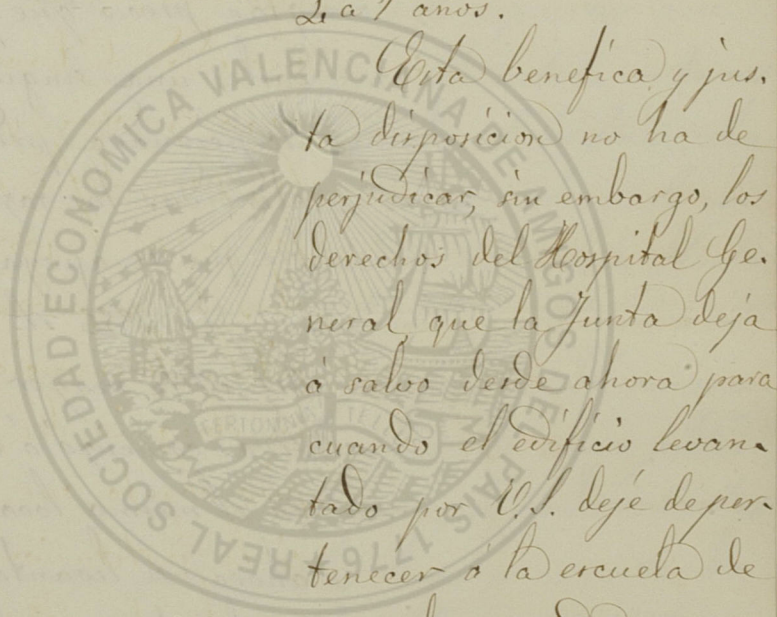 2 a 7 anos.
Esta benefica y jus-
ta disposicion no ha de
perjudicar, sin embargo, los
derechos del Hospital Ge-
neral, que la Junta deja
á salvo desde ahora para
cuando el edificio levan-
tado por V.S. deje de per-
tenecer á la escuela de
REAL SOCIEDAD ECONOMICA VALENCIANA DE AMIGOS DEL PAIS 1776